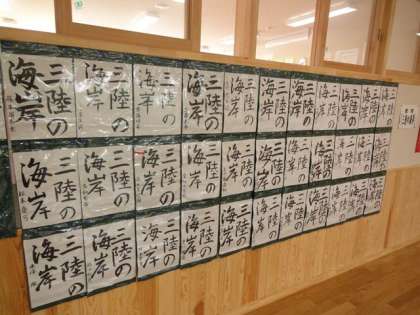 三陸の
海岸
三陸の
海岸
三陸の
海岸
三陸の
海岸
三陸の
海岸
三陸の
海岸
三陸の
海岸
三陸の
海岸
三陸の
海岸
三陸の
海岸
三陸の
海岸
三陸の
海岸
三陸の
海岸
三陸の
海岸
三陸の
海岸
三陸の
海岸
三陸の
海岸
三陸の
海岸
三陸の
海岸
三陸の
海岸
三陸の
海岸
三陸の
海岸
三陸の
海岸
三陸の
海岸
三陸の
海岸
三陸の
海岸
三陸の
海岸
三陸の
海岸
三陸の
海岸
三陸の
海岸
三陸の
海岸
三陸の
海岸
三陸の
海岸